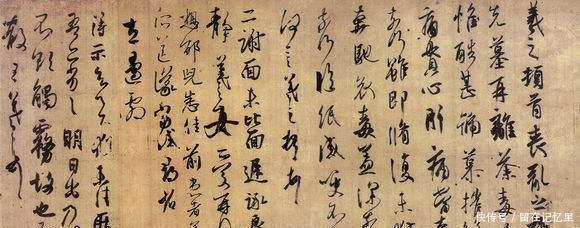 羲之頓首喪亂之
先墓再離荼毒
惟酷甚號慕摧
痛貫心肝痛當
奈何雖即脩復未
奔馳哀毒益深奈
奈何臨紙感哽不
何言羲之頓首
二謝面未比面遲詠良
靜羲之女愛再拜
想邵兒悉佳前患者
所送議當試尋省
左邊劇
得示知足下猶未佳
吾亦劣劣明日出乃
不欲觸霧故也
散王羲之頓首
快传号/留在记忆里